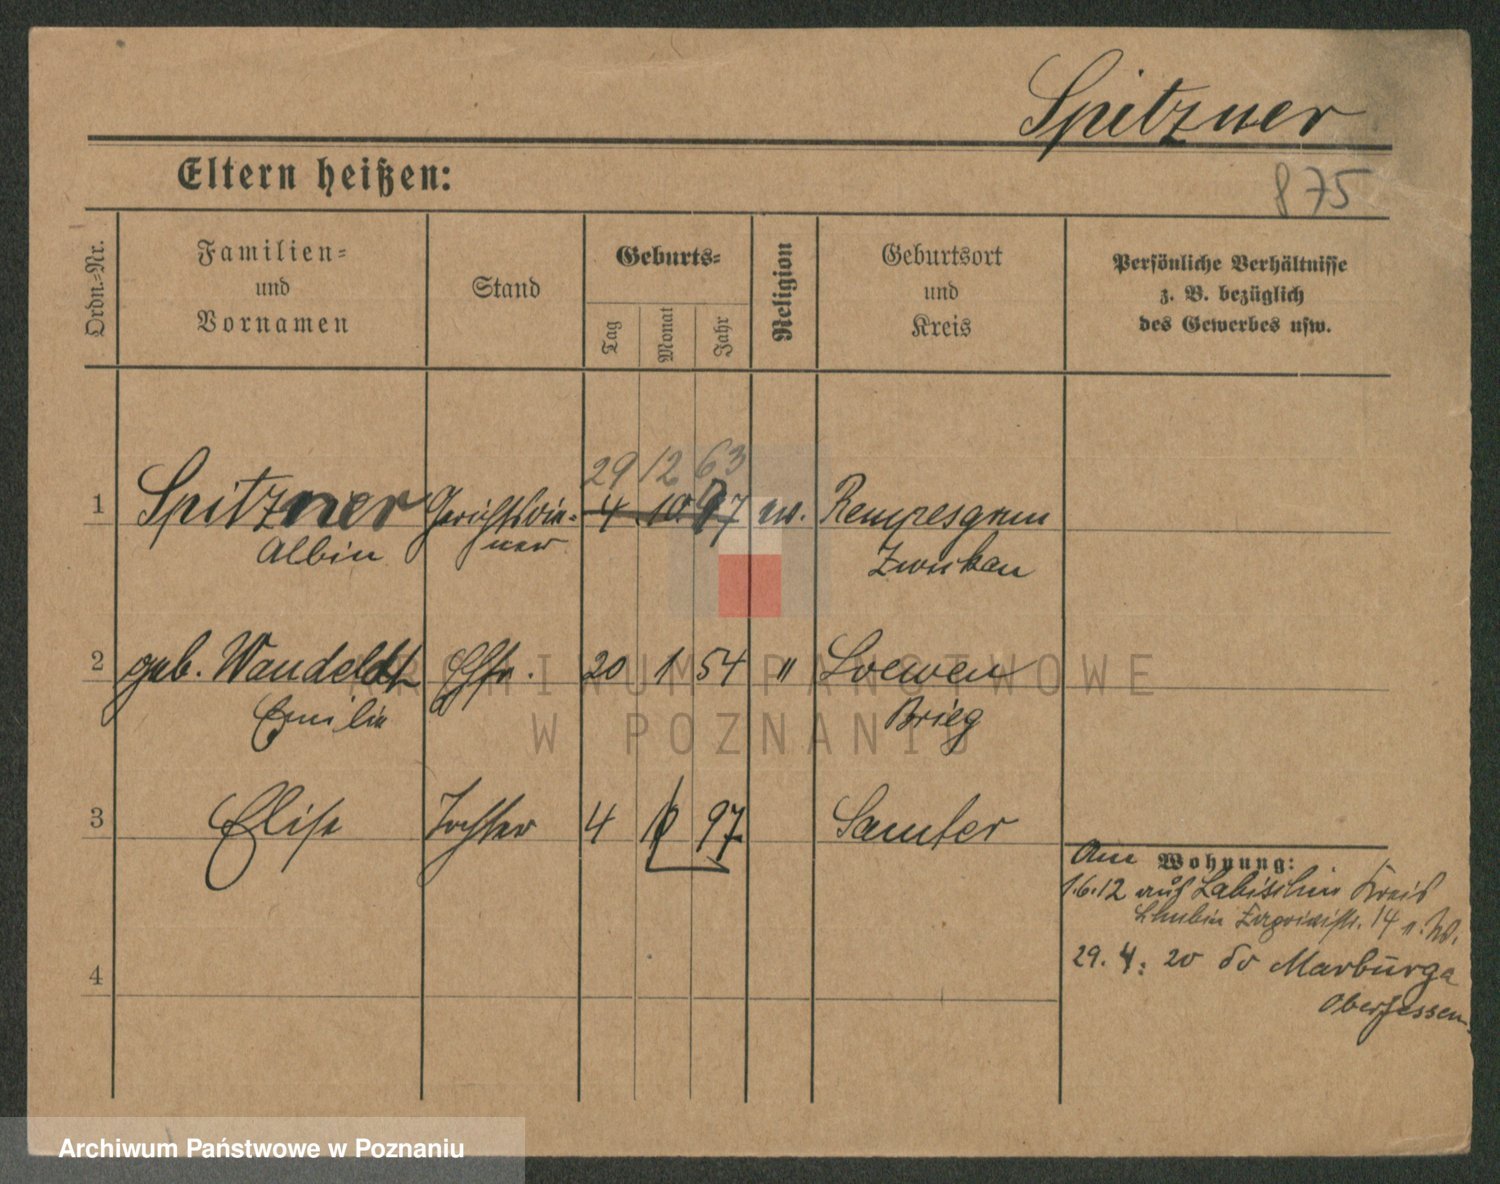 Spitzner
875
Eltern heißen:
Ordn.-Nr.
Familien-
und
Vornamen
Stand
Geburts-
Tag
Monat
Jahr
Religion
Geburtsort
und
Kreis
Persönliche Verhältnisse
z. B. bezüglich
des Gewerbes usw.
29 12 63
1 Spitzner Gerichtsdie- 4 10 97 ev.
Albin ner Zwickau
2 geb. Wandeldt Ehfr. 20 1 54 " Loewen
Emilie Brieg
3 Elise Tochter 4 10 97 Samter
Am Wohnung:
1.6.12 auf Labischin Kreis
Schubin 14
29. 4. 20 Marburg a
Oberhessen
4
ARCHIWUM PAŃSTWOWE
W POZNANIU
Archiwum Państwowe w Poznaniu